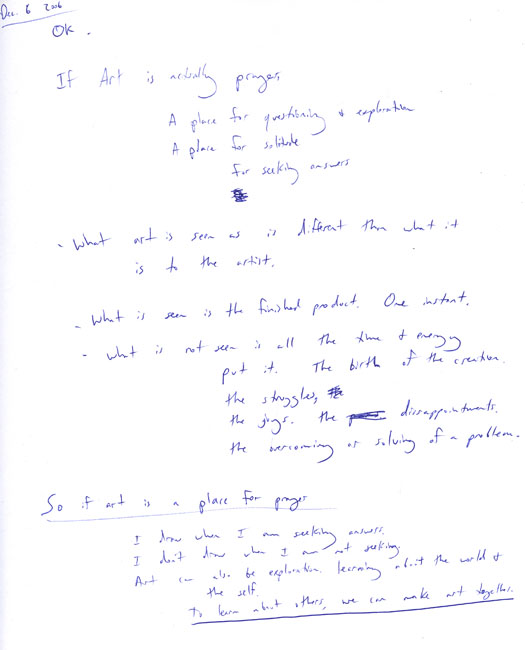 Dec. 6 2006
OK.
If Art is actually prayer,
A place for questioning & exploration
A place for solitude
for seeking answers
- What art is seen as is different than what it
is to the artist.
- What is seen is the finished product. One instant.
- What is not seen is all the time & energy
put it. The birth of the creation.
the struggles,
the joys. the dissappointments.
the overcoming or solving of a problem.
So if art is a place for prayer
I draw when I am seeking answers.
I don't draw when I am not seeking.
Art can also be exploration. learning about the world &
the self.
To learn about others, we can make art together.